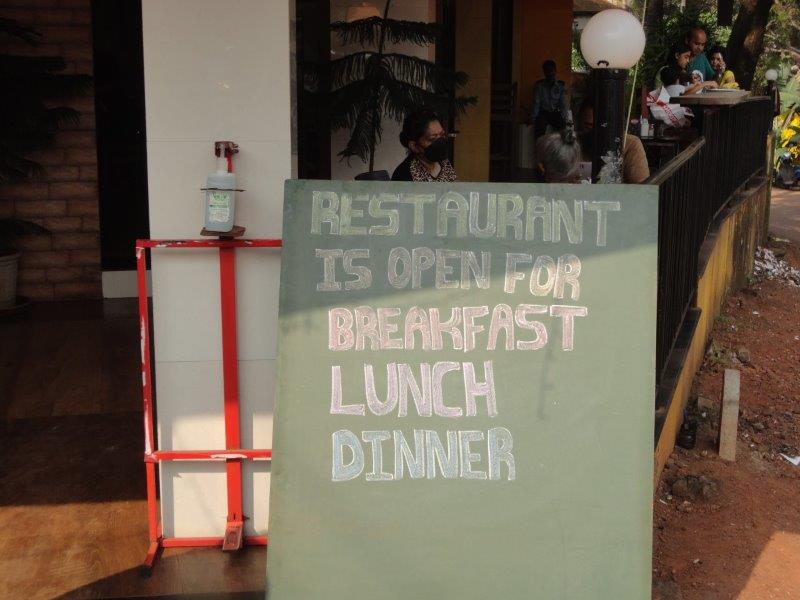 RESTAURANT
IS OPEN FOR
BREAKFAST
LUNCH
DINNER